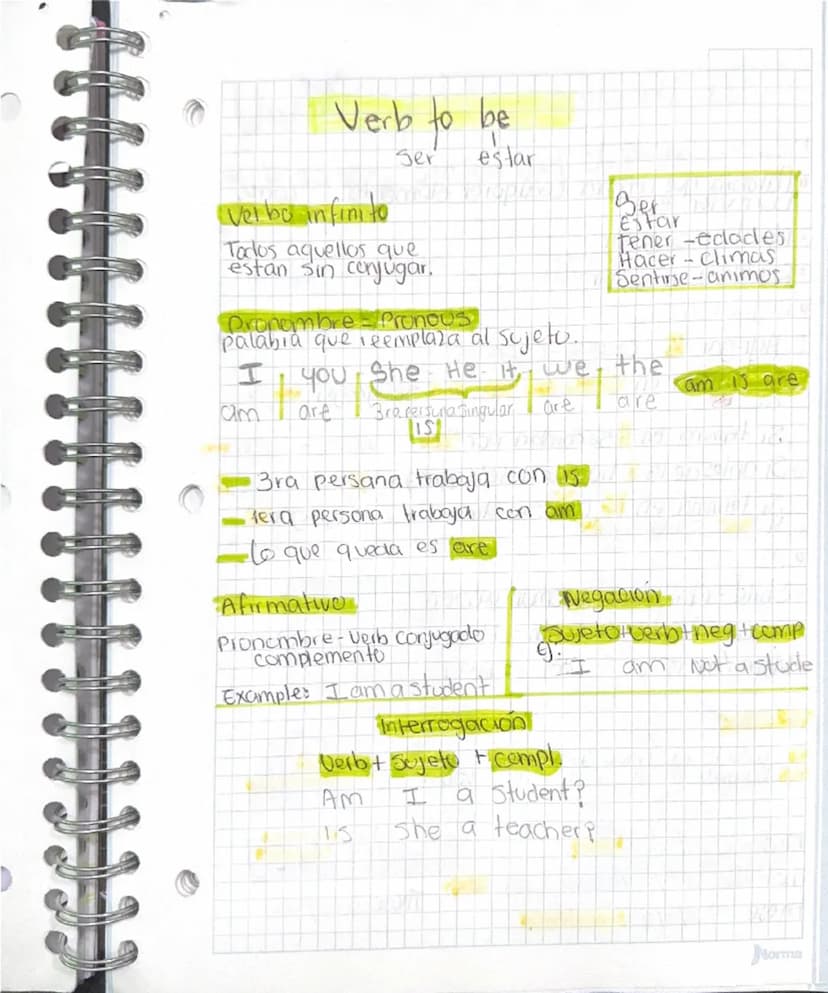 Verb to be
ser estar
Verbo infinito
Todos aquellos que
estan sin conjugar.
Ser
Estar
Tener - edades
Hacer - climas
Sentirse - animos
Pronombre = Pronous
palabra que reemplaza al sujeto.
I | you | She He It | we | the
am | are | 3ra persona singular | are | are
is
am is are
- 3ra persona trabaja con is
- 1era persona trabaja con am
- Lo que queda es are
Afirmativo
Pronombre - Verb conjugado
complemento
Example: I am a student
Negación
Sujeto + verb + neg + comp
g:
I am Not a stude
Interrogación
Verb + Sujeto + compl.
Am I a student?
Is she a teacher?
Norma